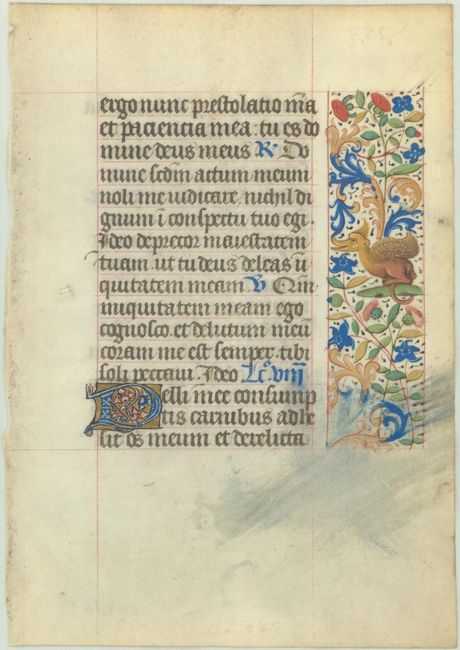 ergo nunc prestolatio m̃a
et paciencia mea: tu es do
mine deus meus R Do
mine scdm̃ actum meum
noli me iudicare. nichil di
gnum ĩ conspectu tuo egi.
Ideo deprecor maiestatem
tuam. ut tu deus deleas ii
quitatem meam V Qm̃
iniquitatem meam ego
cognosco. et delictum meũ
coram me est semper. tibi
soli peccaui. Ideo Lc̃o viiij
Pelli mee consump
tis carnibus adhe
sit os meum et derelicta